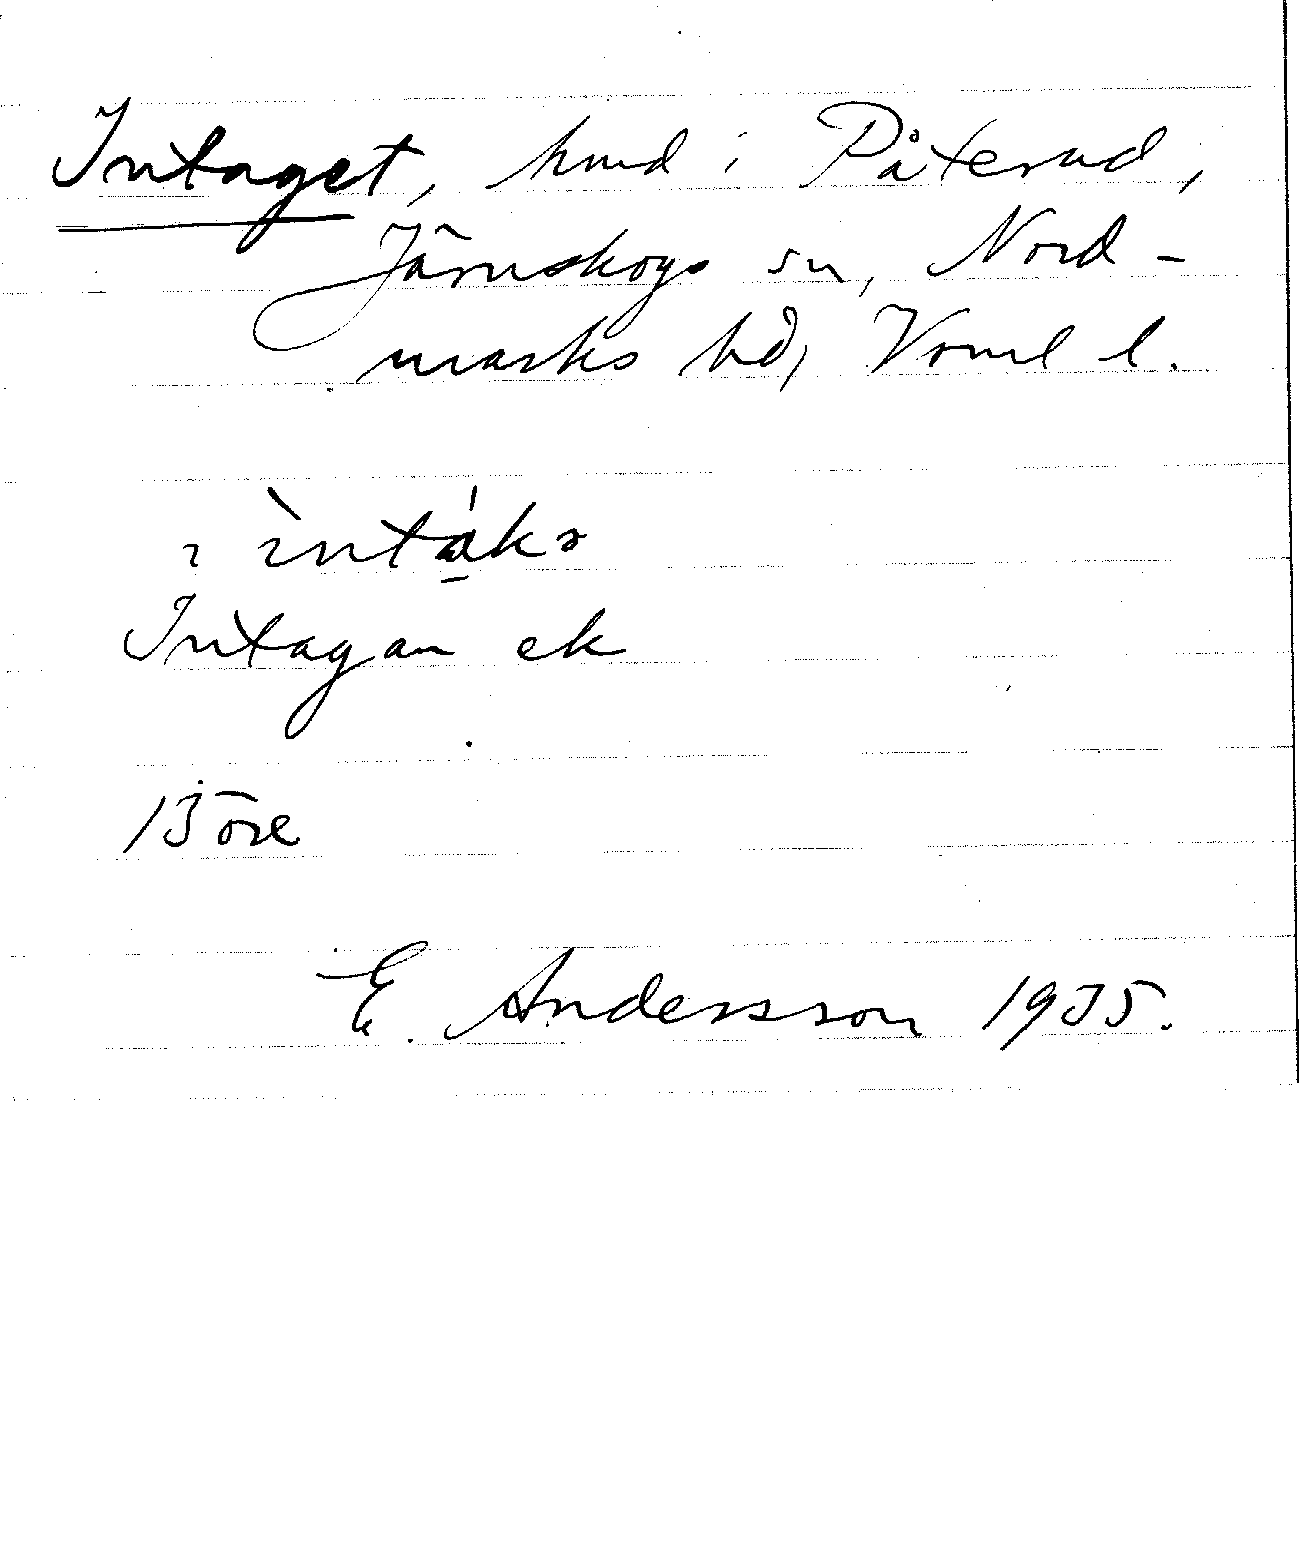 Intaget, hmd i Påterud,
Järnskogs sn, Nord-
marks hd, Vrml l.
ı ìntákə
Intagan ek
13 öre
E. Andersson 1935.